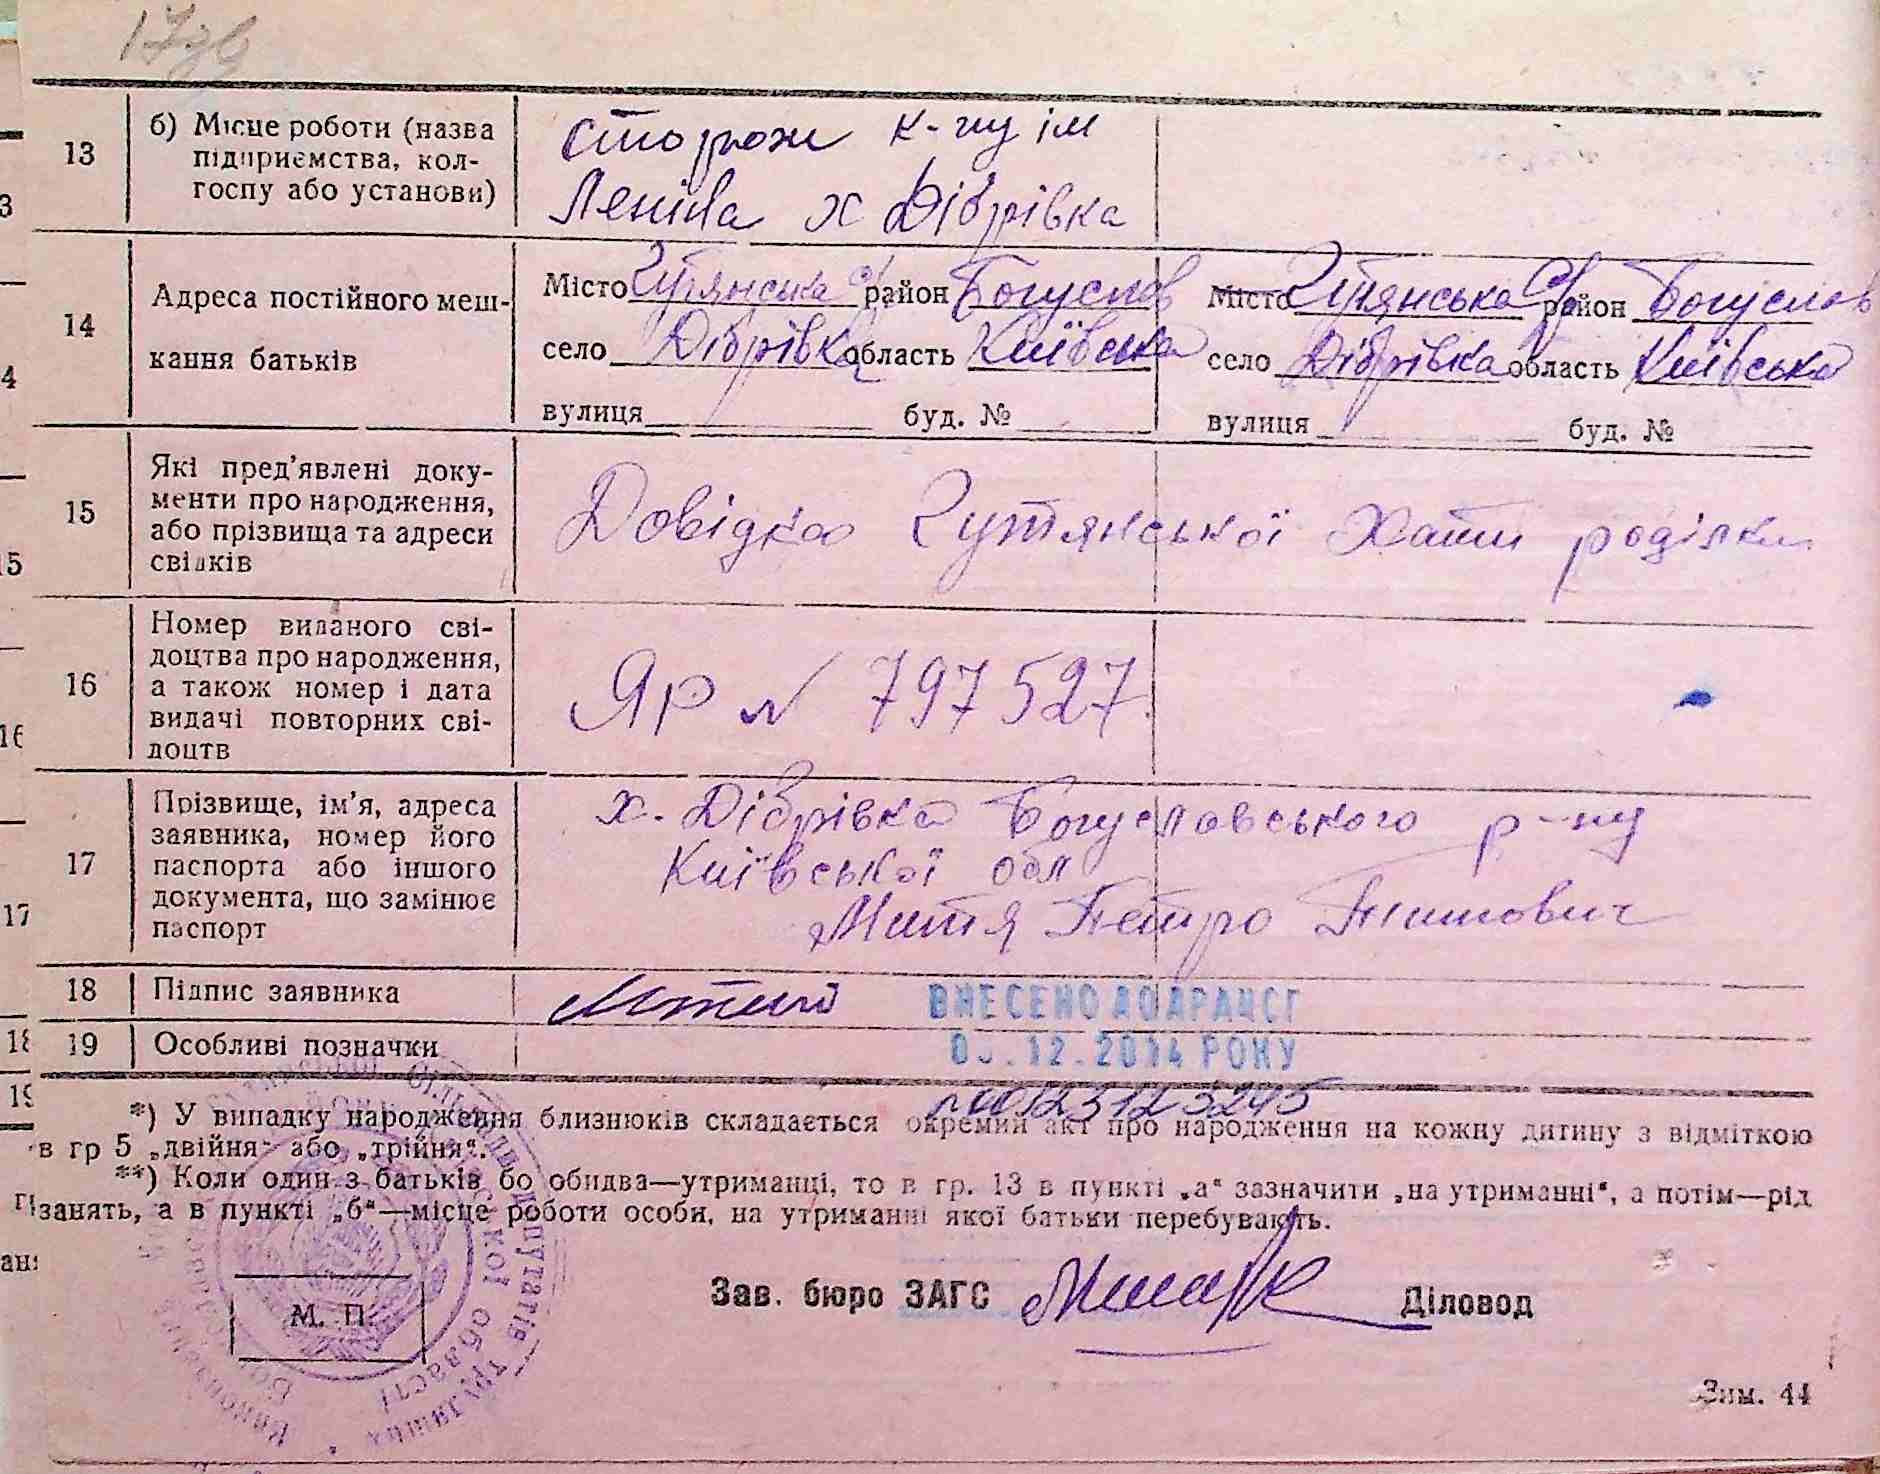 13
б) Місце роботи (назва
підприємства, кол-
госпу або установи)
сторож к-пу ім
Леніна х Дібрівка
14
Адреса постійного меш-
кання батьків
Місто Гутянська с/ район Богуслав
село Дібрівка область Київська
вулиця буд. №
Місто Гутянська с/ район Богуслав
село Дібрівка область Київська
вулиця буд. №
15
Які пред'явлені доку-
менти про народження,
або прізвища та адреси
свідків
Довідка Гутянської Хати роділки
16
Номер виданого сві-
доцтва про народження,
а також номер і дата
видачі повторних сві-
доцтв
ЯР № 797527
17
Прізвище, ім'я, адреса
заявника, номер його
паспорта або іншого
документа, що замінює
паспорт
х. Дібрівка Богуславського р-ну
Київської обл
Митя Петро
18
Підпис заявника
ВНЕСЕНО ДО ДРАЦСГ
19
Особливі позначки
.12.2014 РОКУ
*) У випадку народження близнюків складається окремий акт про народження на кожну дитину з відміткою
в гр 5 „двійня“ або „трійня“.
**) Коли один з батьків бо обидва—утриманці, то в гр. 13 в пункті „а“ зазначити „на утриманні“, а потім—рід
занять, а в пункті „б“—місце роботи особи, на утриманні якої батьки перебувають.
М. П.
Зав. бюро ЗАГС
Діловод
Зим. 44